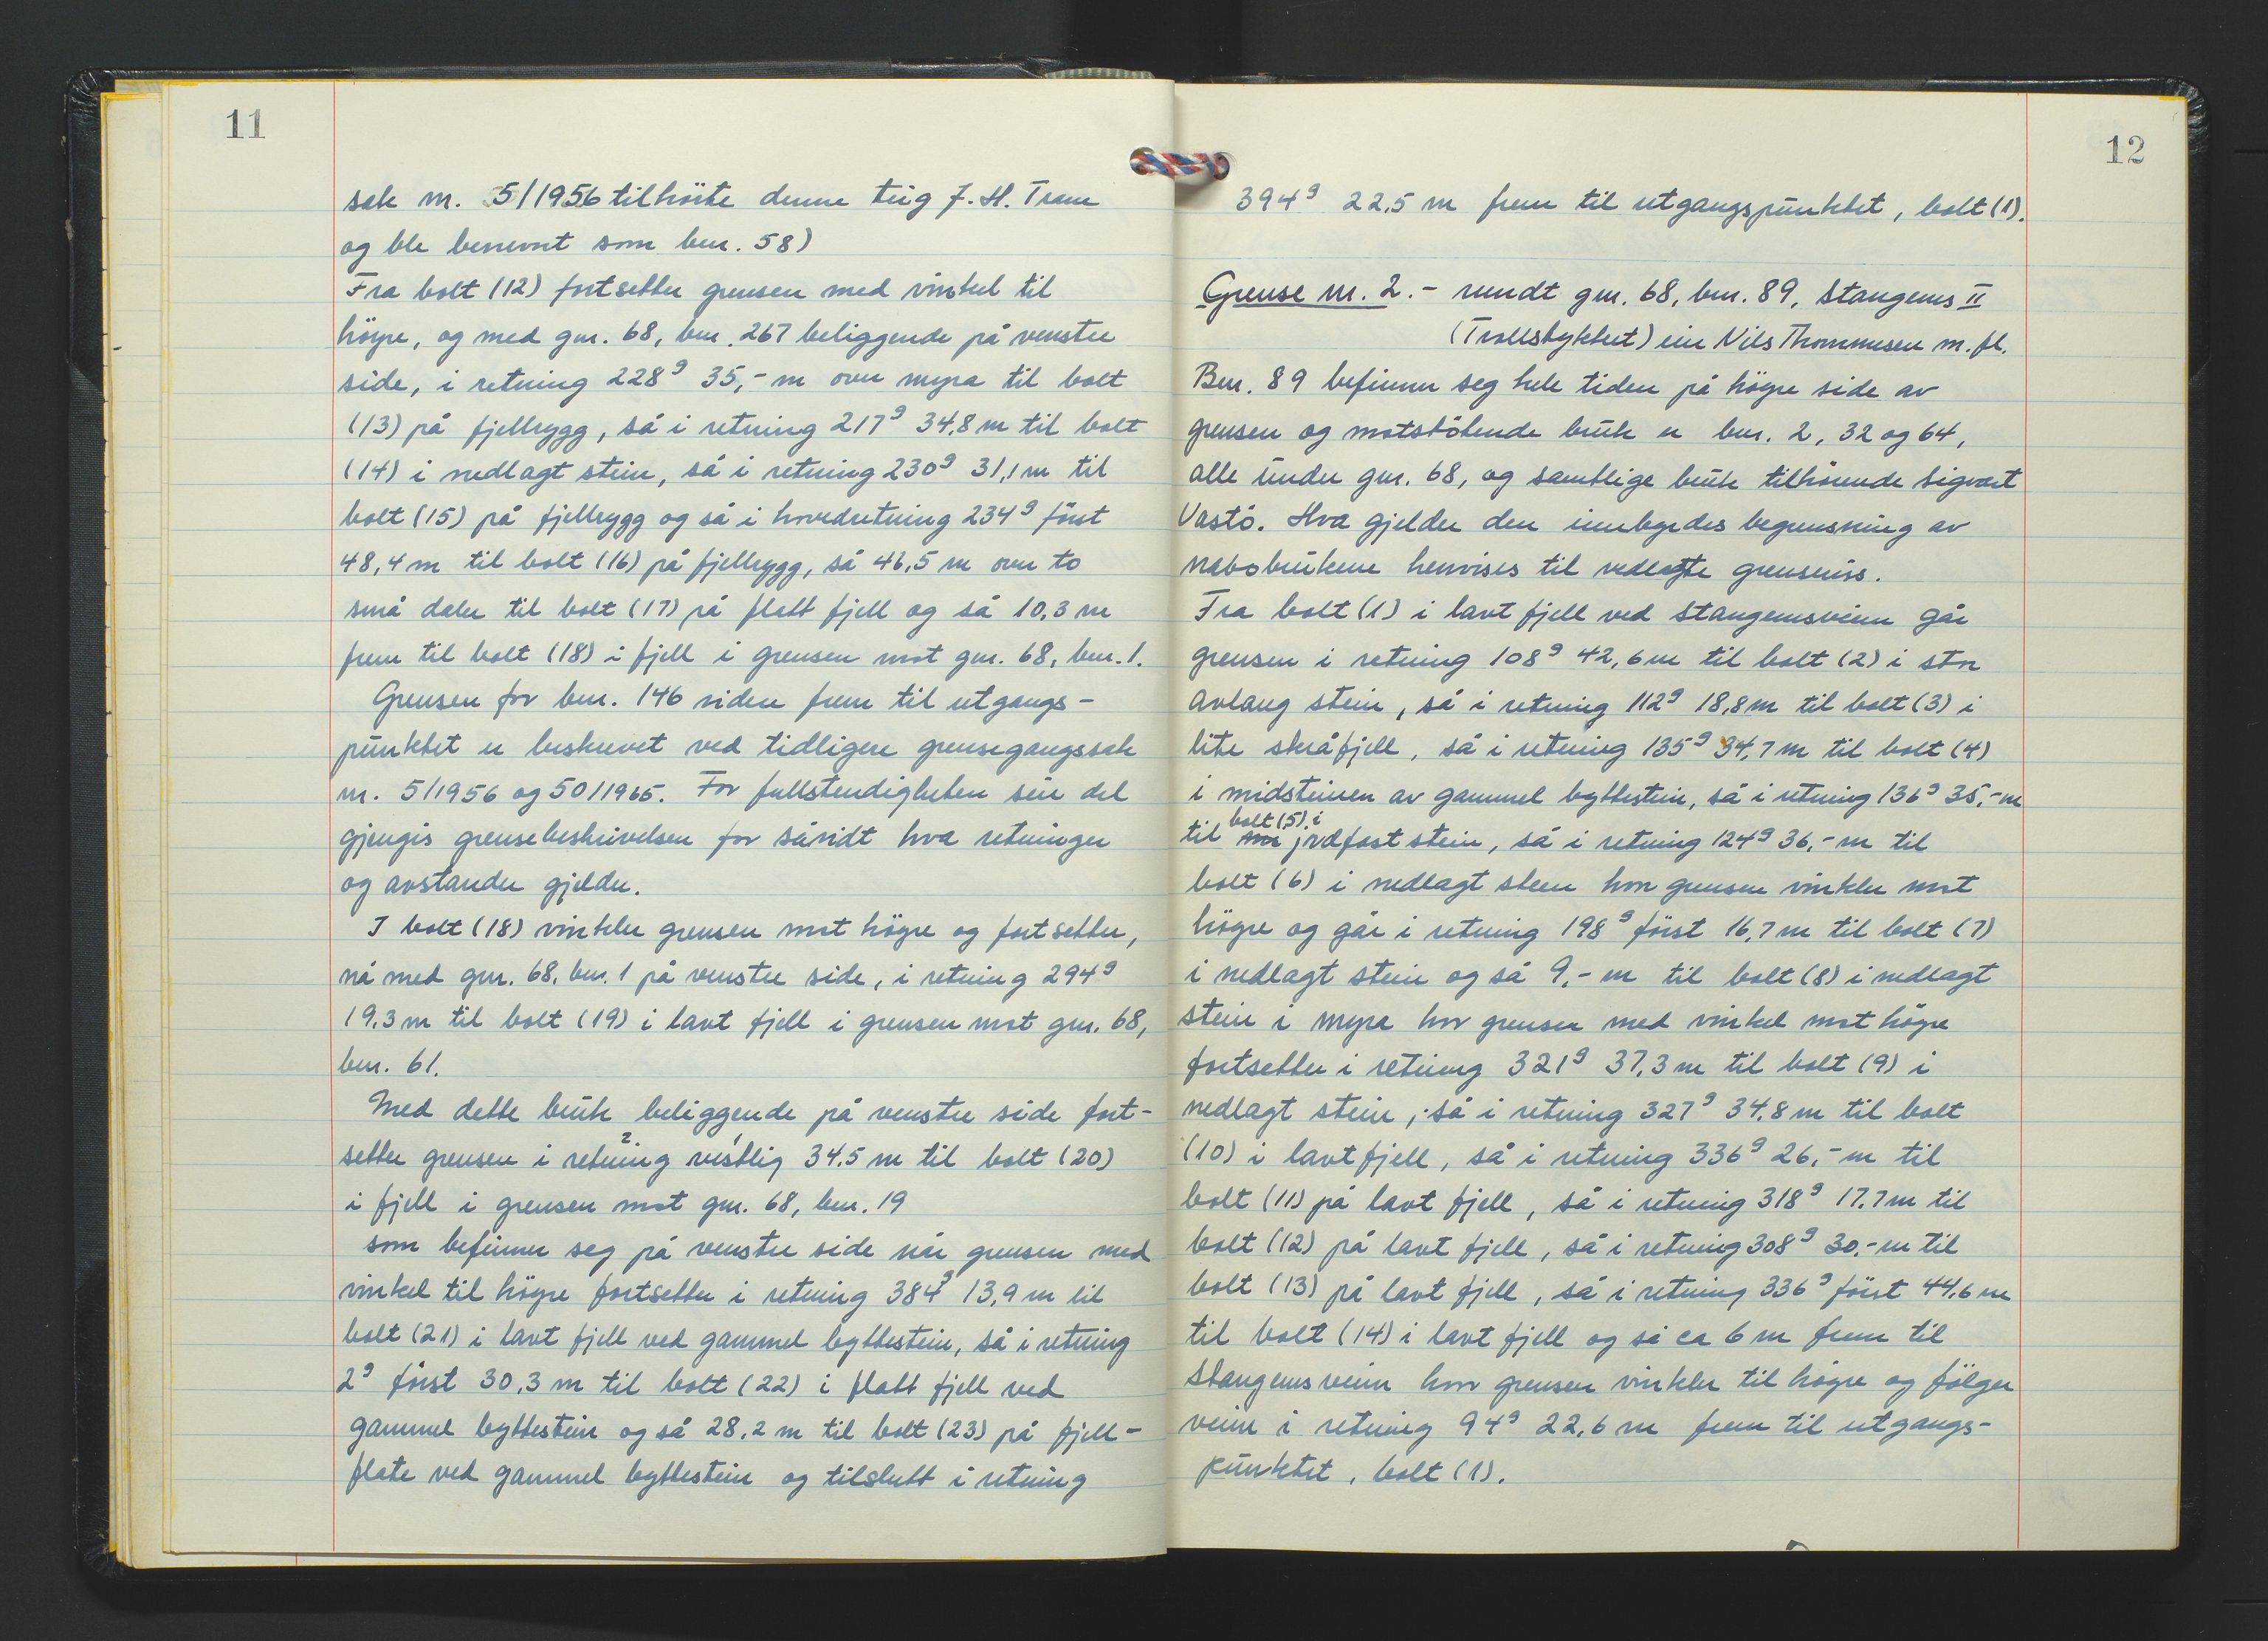 11
sak nr. 5/1956 tilhörte denne teig J. H. Tram
og ble benevnt som bnr. 58)
Fra bolt (12) fortsetter grensen med vinkel til
höyre, og med gnr. 68, bnr. 267 beliggende på venstre
side, i retning 228g 35,- m over myra til bolt
(13) på fjellrygg, så i retning 217g 34,8 m til bolt
(14) i nedlagt stein, så i retning 230g 31,1 m til
bolt (15) på fjellrygg og så i hovedretning 234g först
48,4 m til bolt (16) på fjellrygg, så 46,5 m over to
små daler til bolt (17) på flatt fjell og så 10,3 m
frem til bolt (18) i fjell i grensen mot gnr. 68, bnr. 1.
Grensen for bnr. 146 videre frem til utgangs-
punktet er beskrevet ved tidligere grensegangssak
nr. 5/1956 og 50/1965. For fullstendigheten sin del
gjengis grensebeskrivelsen for såvidt hva retninger
og avstander gjelder.
I bolt (18) vinkler grensen mot höyre og fortsetter,
nå med gnr. 68, bnr. 1 på venstre side, i retning 294g
19,3 m til bolt (19) i lavt fjell i grensen mot gnr. 68,
bnr. 61.
Med dette bruk beliggende på venstre side fort-
setter grensen i retning vestlig 34,5 m til bolt (20)
i fjell i grensen mot gnr. 68, bnr. 19
som befinner seg på venstre side når grensen med
vinkel til höyre fortsetter i retning 384g 13,9 m til
bolt (21) i lavt fjell ved gammel byttestein, så i retning
2g först 30,3 m til bolt (22) i flatt fjell ved
gammel byttestein og så 28,2 m til bolt (23) på fjell-
flate ved gammel byttestein og tilslutt i retning
12
394g 22,5 m frem til utgangspunktet, bolt (1).
Grense nr. 2.- rundt gnr. 68, bnr. 89, Stangenes II
(Trollstykket) eier Nils Thommesen m. fl.
Bnr. 89 befinner seg hele tiden på höyre side av
grensen og motstötende bruk er bnr. 2, 32 og 64,
alle under gnr. 68, og samtlige bruk tilhörende Sigvart
Vastö. Hva gjelder den innbyrdes begrensning av
nabobrukene henvises til vedlagte grenseriss.
Fra bolt (1) i lavt fjell ved Stangenesveien går
grensen i retning 108g 42,6 m til bolt (2) i stor
avlang stein, så i retning 112g 18,8 m til bolt (3) i
lite skråfjell, så i retning 135g 34,7 m til bolt (4)
i midsteinen av gammel byttestein, så i retning 136g 35,- m
til bolt (5) i jordfast stein, så i retning 124g 36,- m til
bolt (6) i nedlagt stein hvor grensen vinkler mot
höyre og går i retning 198g först 16,7 m til bolt (7)
i nedlagt stein og så 9,- m til bolt (8) i nedlagt
stein i myra hvor grensen med vinkel mot höyre
fortsetter i retning 321g 37,3 m til bolt (9) i
nedlagt stein, så i retning 327g 34,8 m til bolt
(10) i lavt fjell, så i retning 336g 26,- m til
bolt (11) på lavt fjell, så i retning 318g 17,7 m til
bolt (12) på lavt fjell, så i retning 308g 30,- m til
bolt (13) på lavt fjell, så i retning 336g först 44,6 m
til bolt (14) i lavt fjell og så ca 6 m frem til
Stangenesveien hvor grensen vinkler til höyre og fölger
veien i retning 94g 22,6 m frem til utgangs-
punktet, bolt (1).